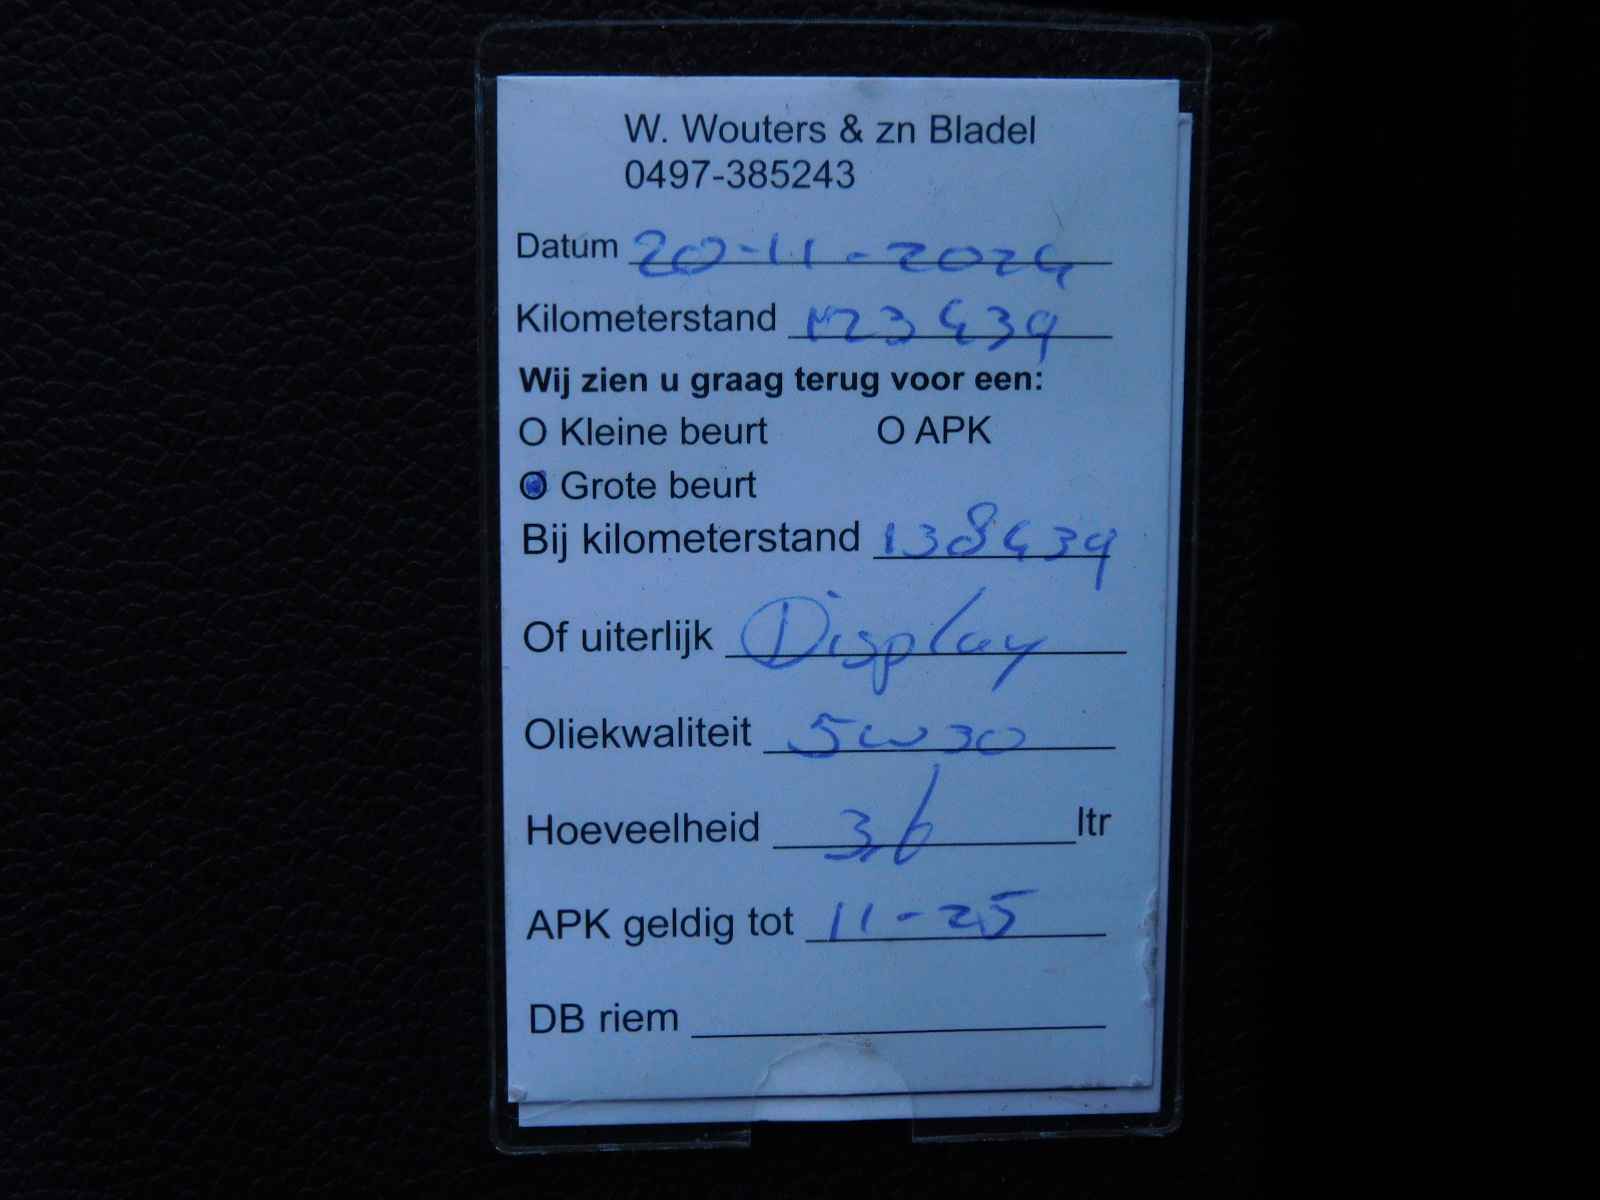 W. Wouters & zn Bladel
0497-385243
Datum 20-11-2024
Kilometerstand 123439
Wij zien u graag terug voor een:
O Kleine beurt O APK
O Grote beurt
Bij kilometerstand 138439
Of uiterlijk Display
Oliekwaliteit 5w30
Hoeveelheid 3,6 ltr
APK geldig tot 11-25
DB riem